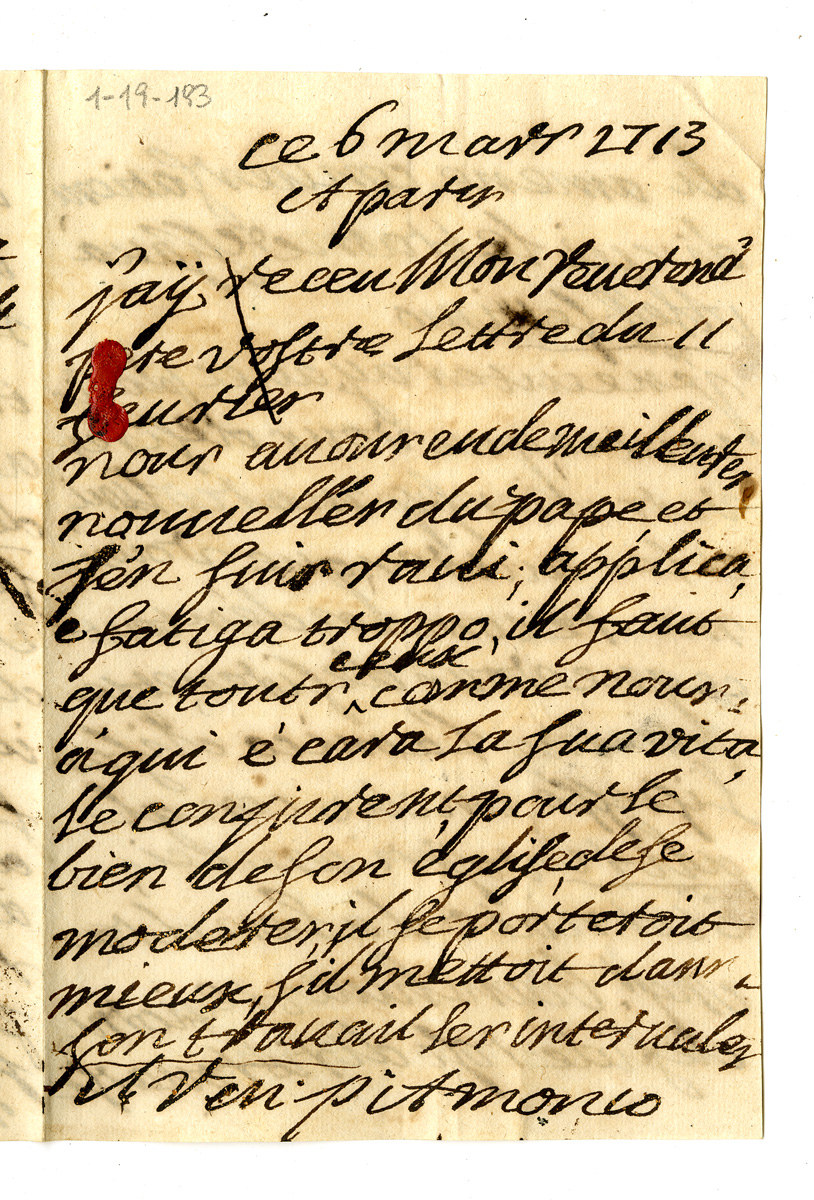 1-19-183
ce 6 mars 1713
A paris
j'aÿ receu Mon Reuerend
pere vostre lettre du 11
feurier
nous auons eu de meilleures
nouuelles du pape, et
j'en suis raui; applica,
e fatiga troppo, il faut
que touts ceux comme nous,
à qui è cara la sua vita,
le conjurent, pour le
bien de son église, de se
moderer, il se porteroit
mieux, s'il mettoit dans
son trauail les interuales